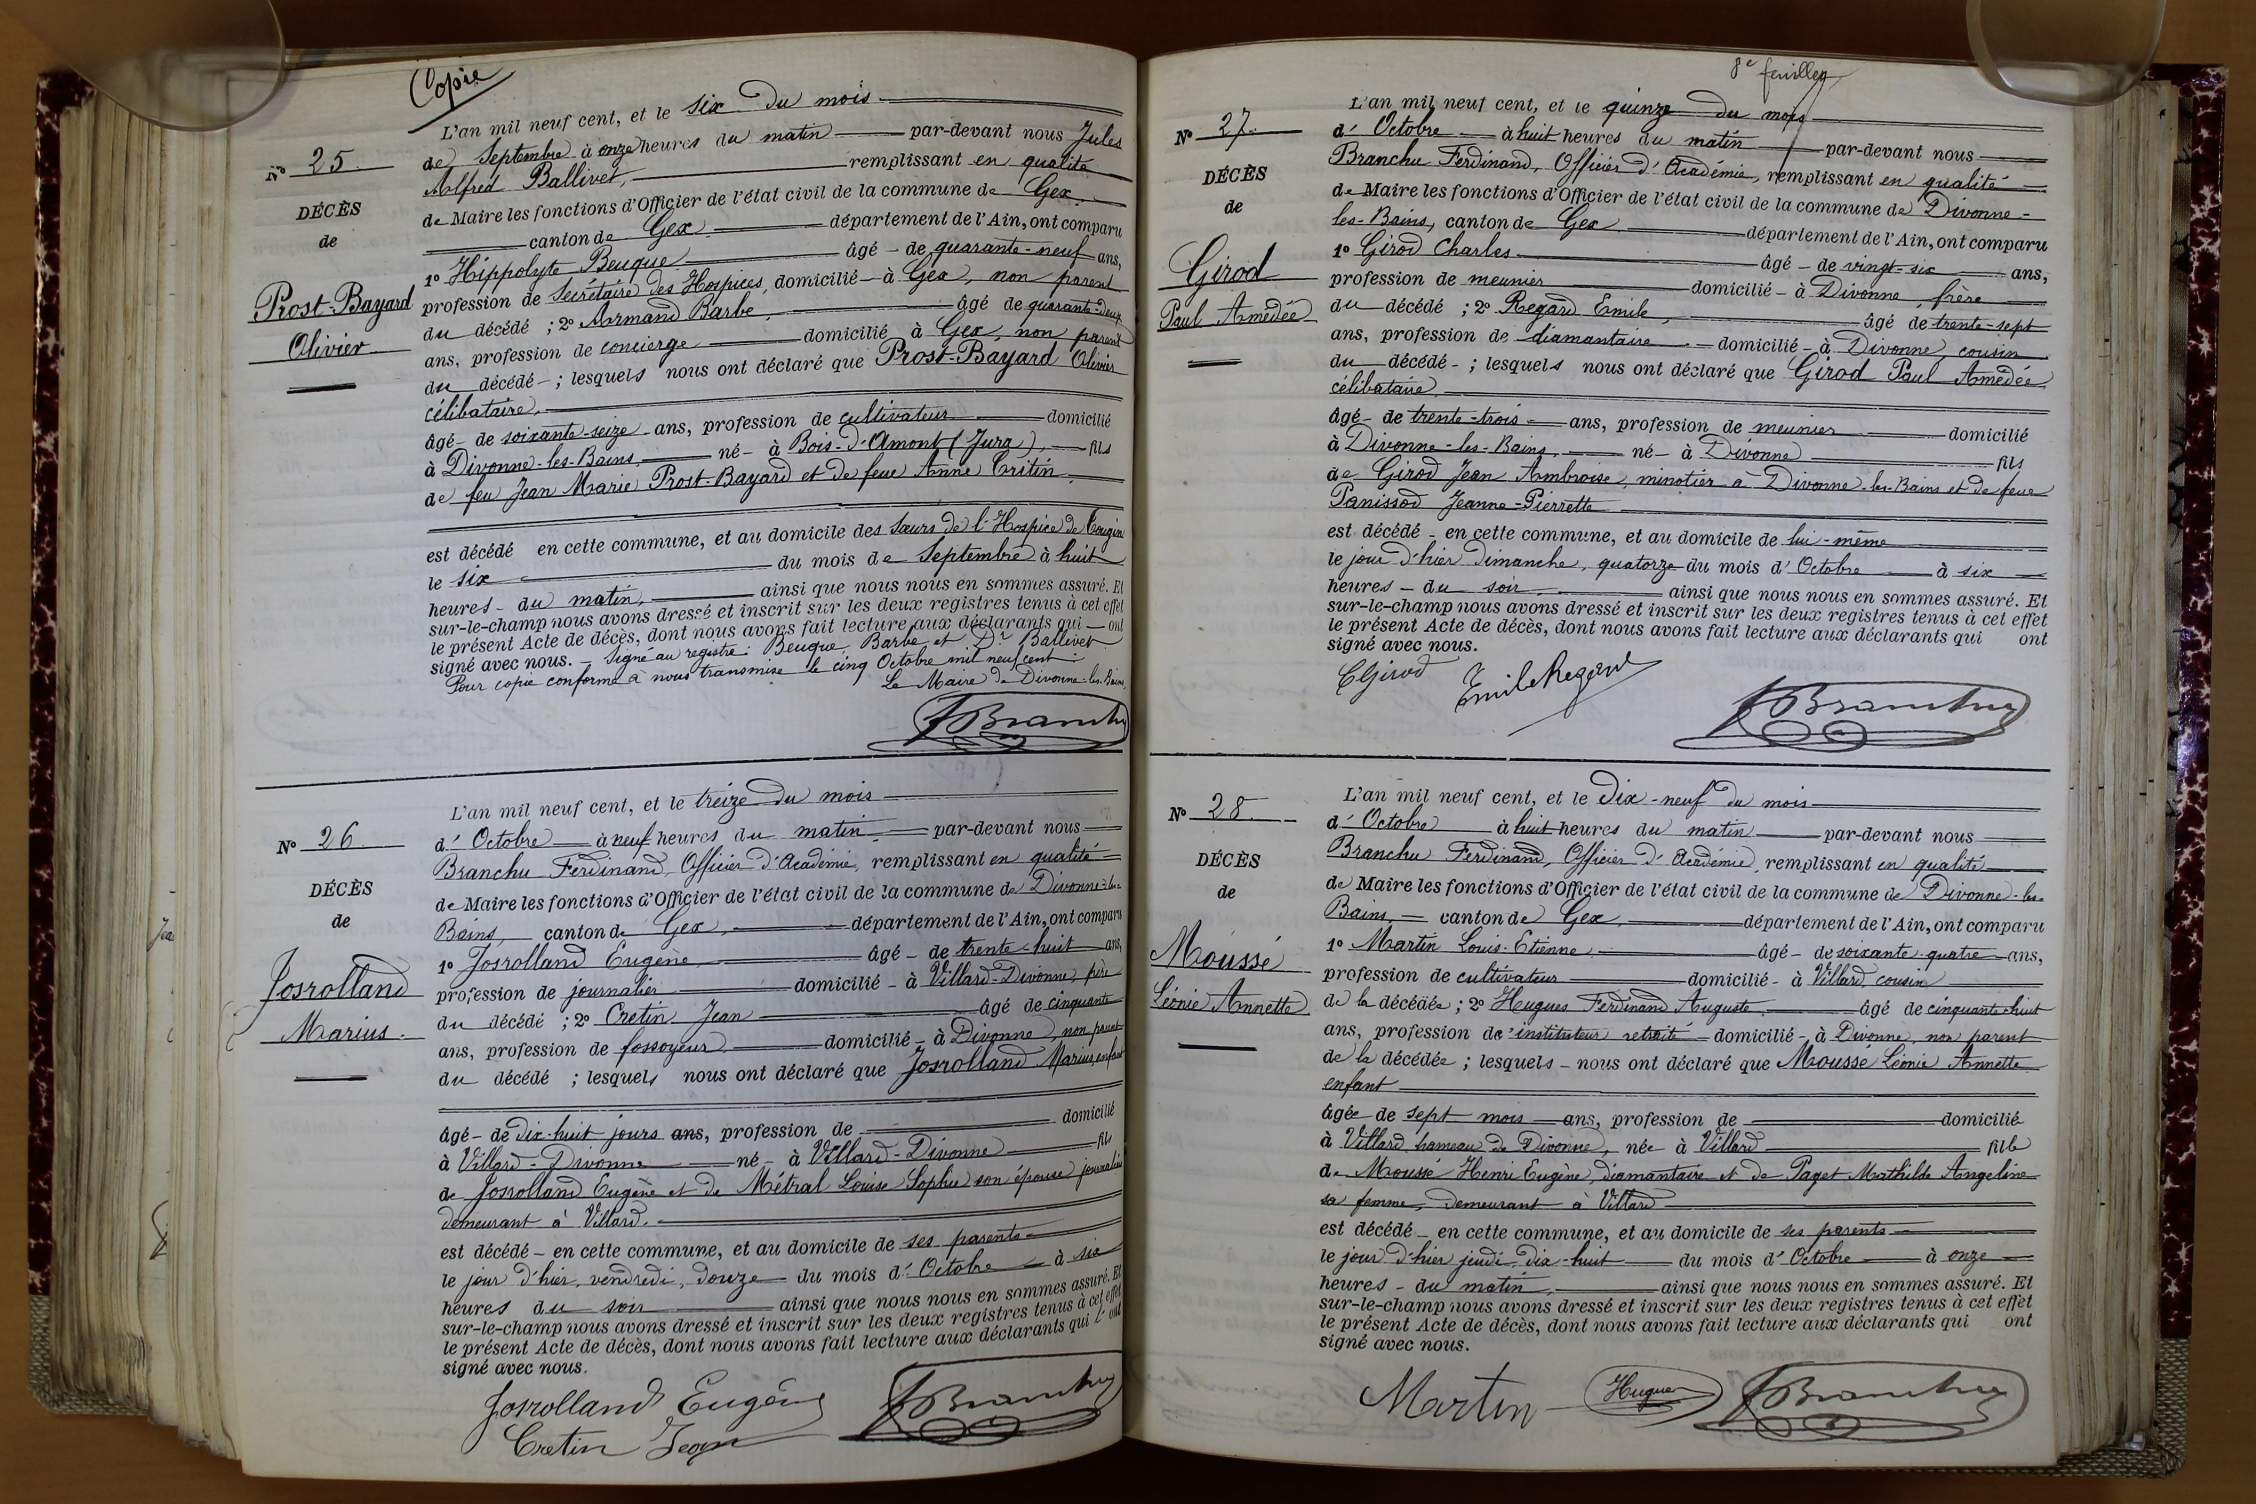 Copie
L'an mil neuf cent, et le six du mois
de Septembre à onze heures du matin par-devant nous Jules
Alfred Ballivet, remplissant en qualité
de Maire les fonctions d'Officier de l'état civil de la commune de Gex
canton de Gex département de l'Ain, ont comparu
1º Hippolyte Beuque âgé de quarante-neuf ans,
profession de Secrétaire des Hospices, domicilié à Gex, non parent
du décédé ; 2º Armand Barbe, âgé de quarante-deux
ans, profession de concierge domicilié à Gex, non parent
du décédé ; lesquels nous ont déclaré que Prost-Bayard Olivier
célibataire,
âgé de soixante-seize ans, profession de cultivateur domicilié
à Divonne-les-Bains, né à Bois-d'Amont (Jura), fils
de feu Jean Marie Prost-Bayard et de feue Anne Critin,
est décédé en cette commune, et au domicile des Sœurs de l'Hospice de Tougin
le six du mois de Septembre à huit
heures du matin, ainsi que nous nous en sommes assuré. Et
sur-le-champ nous avons dressé et inscrit sur les deux registres tenus à cet effet
le présent Acte de décès, dont nous avons fait lecture aux déclarants qui ont
signé avec nous. - Signé au registre : Beuque, Barbe et Dr Ballivet
Pour copie conforme à nous transmise le cinq Octobre mil neuf cent
Le Maire de Divonne-les-Bains,
F Branchu
Nº 25
DÉCÈS
de
Prost-Bayard
Olivier
L'an mil neuf cent, et le treize du mois
d'Octobre à neuf heures du matin par-devant nous
Branchu Ferdinand, Officier d'Académie, remplissant en qualité
de Maire les fonctions d'Officier de l'état civil de la commune de Divonne-les-
Bains, canton de Gex, département de l'Ain, ont comparu
1º Josrolland Eugène âgé de trente-huit ans,
profession de journalier domicilié à Villard-Divonne, père
du décédé ; 2º Cretin Jean âgé de cinquante
ans, profession de fossoyeur domicilié à Divonne, non parent
du décédé ; lesquels nous ont déclaré que Josrolland Marius, enfant
âgé de dix-huit jours ans, profession de domicilié
à Villard-Divonne né à Villard-Divonne fils
de Josrolland Eugène et de Métral Louise Sophie son épouse journaliers
demeurant à Villard.
est décédé en cette commune, et au domicile de ses parents
le jour d'hier, vendredi, douze du mois d'Octobre à six
heures du soir ainsi que nous nous en sommes assuré. Et
sur-le-champ nous avons dressé et inscrit sur les deux registres tenus à cet effet
le présent Acte de décès, dont nous avons fait lecture aux déclarants qui l'ont
signé avec nous.
Josrolland Eugène
Cretin Jean
F Branchu
Nº 26
DÉCÈS
de
Josrolland
Marius
8e feuillet
L'an mil neuf cent, et le quinze du mois
d'Octobre à huit heures du matin par-devant nous
Branchu Ferdinand, Officier d'Académie, remplissant en qualité
de Maire les fonctions d'Officier de l'état civil de la commune de Divonne-
les-Bains, canton de Gex département de l'Ain, ont comparu
1º Girod Charles âgé de vingt-six ans,
profession de meunier domicilié à Divonne, frère
du décédé ; 2º Regard Emile, âgé de trente-sept
ans, profession de diamantaire domicilié à Divonne, cousin
du décédé ; lesquels nous ont déclaré que Girod Paul Amédée
célibataire
âgé de trente-trois ans, profession de meunier domicilié
à Divonne-les-Bains, né à Divonne fils
de Girod Jean Ambroise, minotier à Divonne-les-Bains et de feue
Panissod Jeanne-Pierrette
est décédé en cette commune, et au domicile de lui-même
le jour d'hier Dimanche, quatorze du mois d'Octobre à six
heures du soir, ainsi que nous nous en sommes assuré. Et
sur-le-champ nous avons dressé et inscrit sur les deux registres tenus à cet effet
le présent Acte de décès, dont nous avons fait lecture aux déclarants qui ont
signé avec nous.
C Girod
Emile Regard
F Branchu
Nº 27.
DÉCÈS
de
Girod
Paul Amédée
L'an mil neuf cent, et le Dix-neuf du mois
d'Octobre à huit heures du matin par-devant nous
Branchu Ferdinand, Officier d'Académie, remplissant en qualité
de Maire les fonctions d'Officier de l'état civil de la commune de Divonne-les-
Bains, canton de Gex, département de l'Ain, ont comparu
1º Martin Louis-Etienne, âgé de soixante-quatre ans,
profession de cultivateur domicilié à Villard, cousin
de la décédée ; 2º Hugues Ferdinand Auguste, âgé de cinquante-huit
ans, profession d'instituteur retraité domicilié à Divonne, non parent
de la décédée ; lesquels nous ont déclaré que Moussé Léonie Annette
enfant
âgée de sept mois ans, profession de domicilié
à Villard hameau de Divonne, née à Villard fille
de Moussé Henri Eugène, diamantaire et de Paget Mathilde Angeline
sa femme, demeurant à Villard
est décédé en cette commune, et au domicile de ses parents
le jour d'hier jeudi, dix-huit du mois d'Octobre à onze
heures du matin, ainsi que nous nous en sommes assuré. Et
sur-le-champ nous avons dressé et inscrit sur les deux registres tenus à cet effet
le présent Acte de décès, dont nous avons fait lecture aux déclarants qui ont
signé avec nous.
Martin
Hugues
F Branchu
Nº 28
DÉCÈS
de
Moussé
Léonie Annette